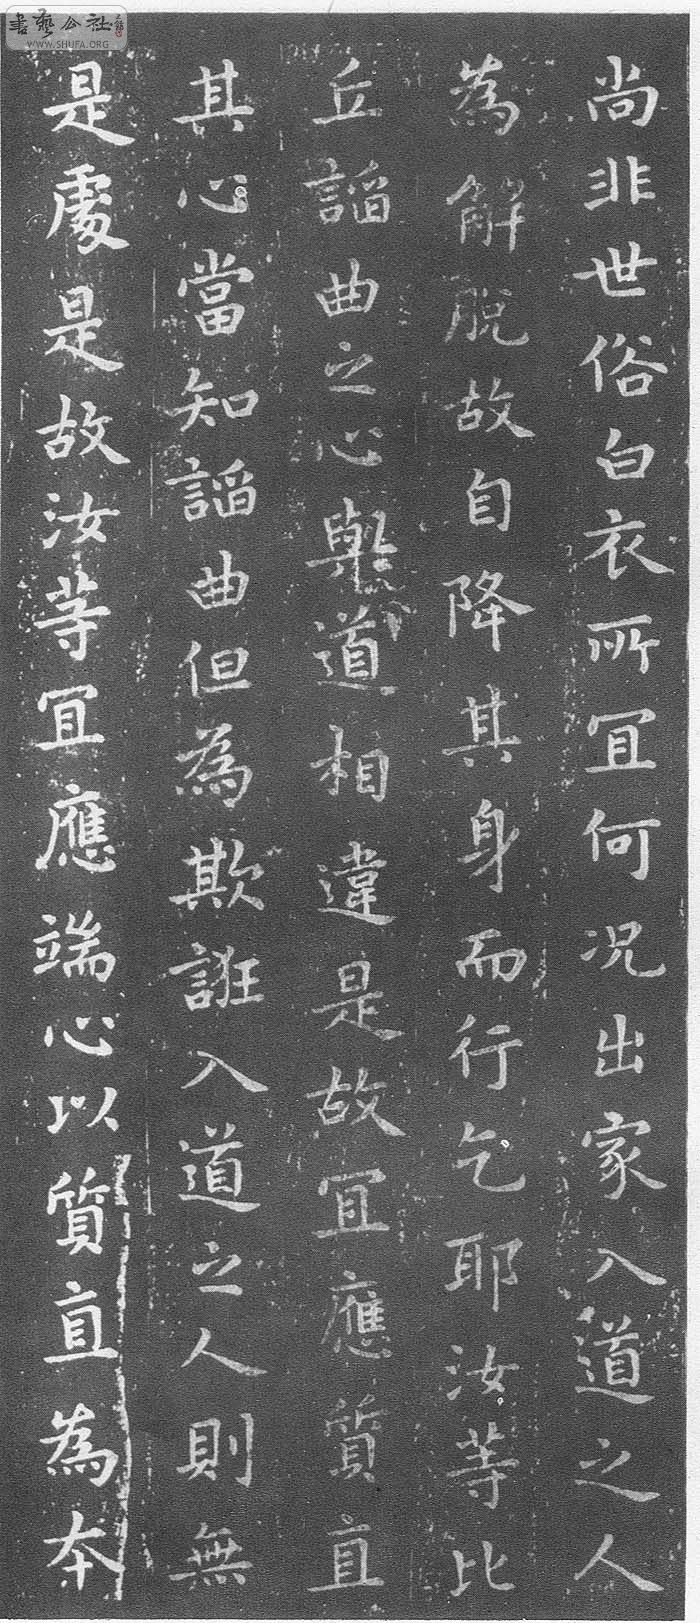 尚非世俗白衣所冝何况出家入道之人
為解脱故自降其身而行乞耶汝等比
丘謟曲之心與道相違是故冝應質直
其心當知謟曲但為欺誑入道之人則無
是處是故汝等冝應端心以質直為本
書藝公社
WWW.SHUFA.ORG